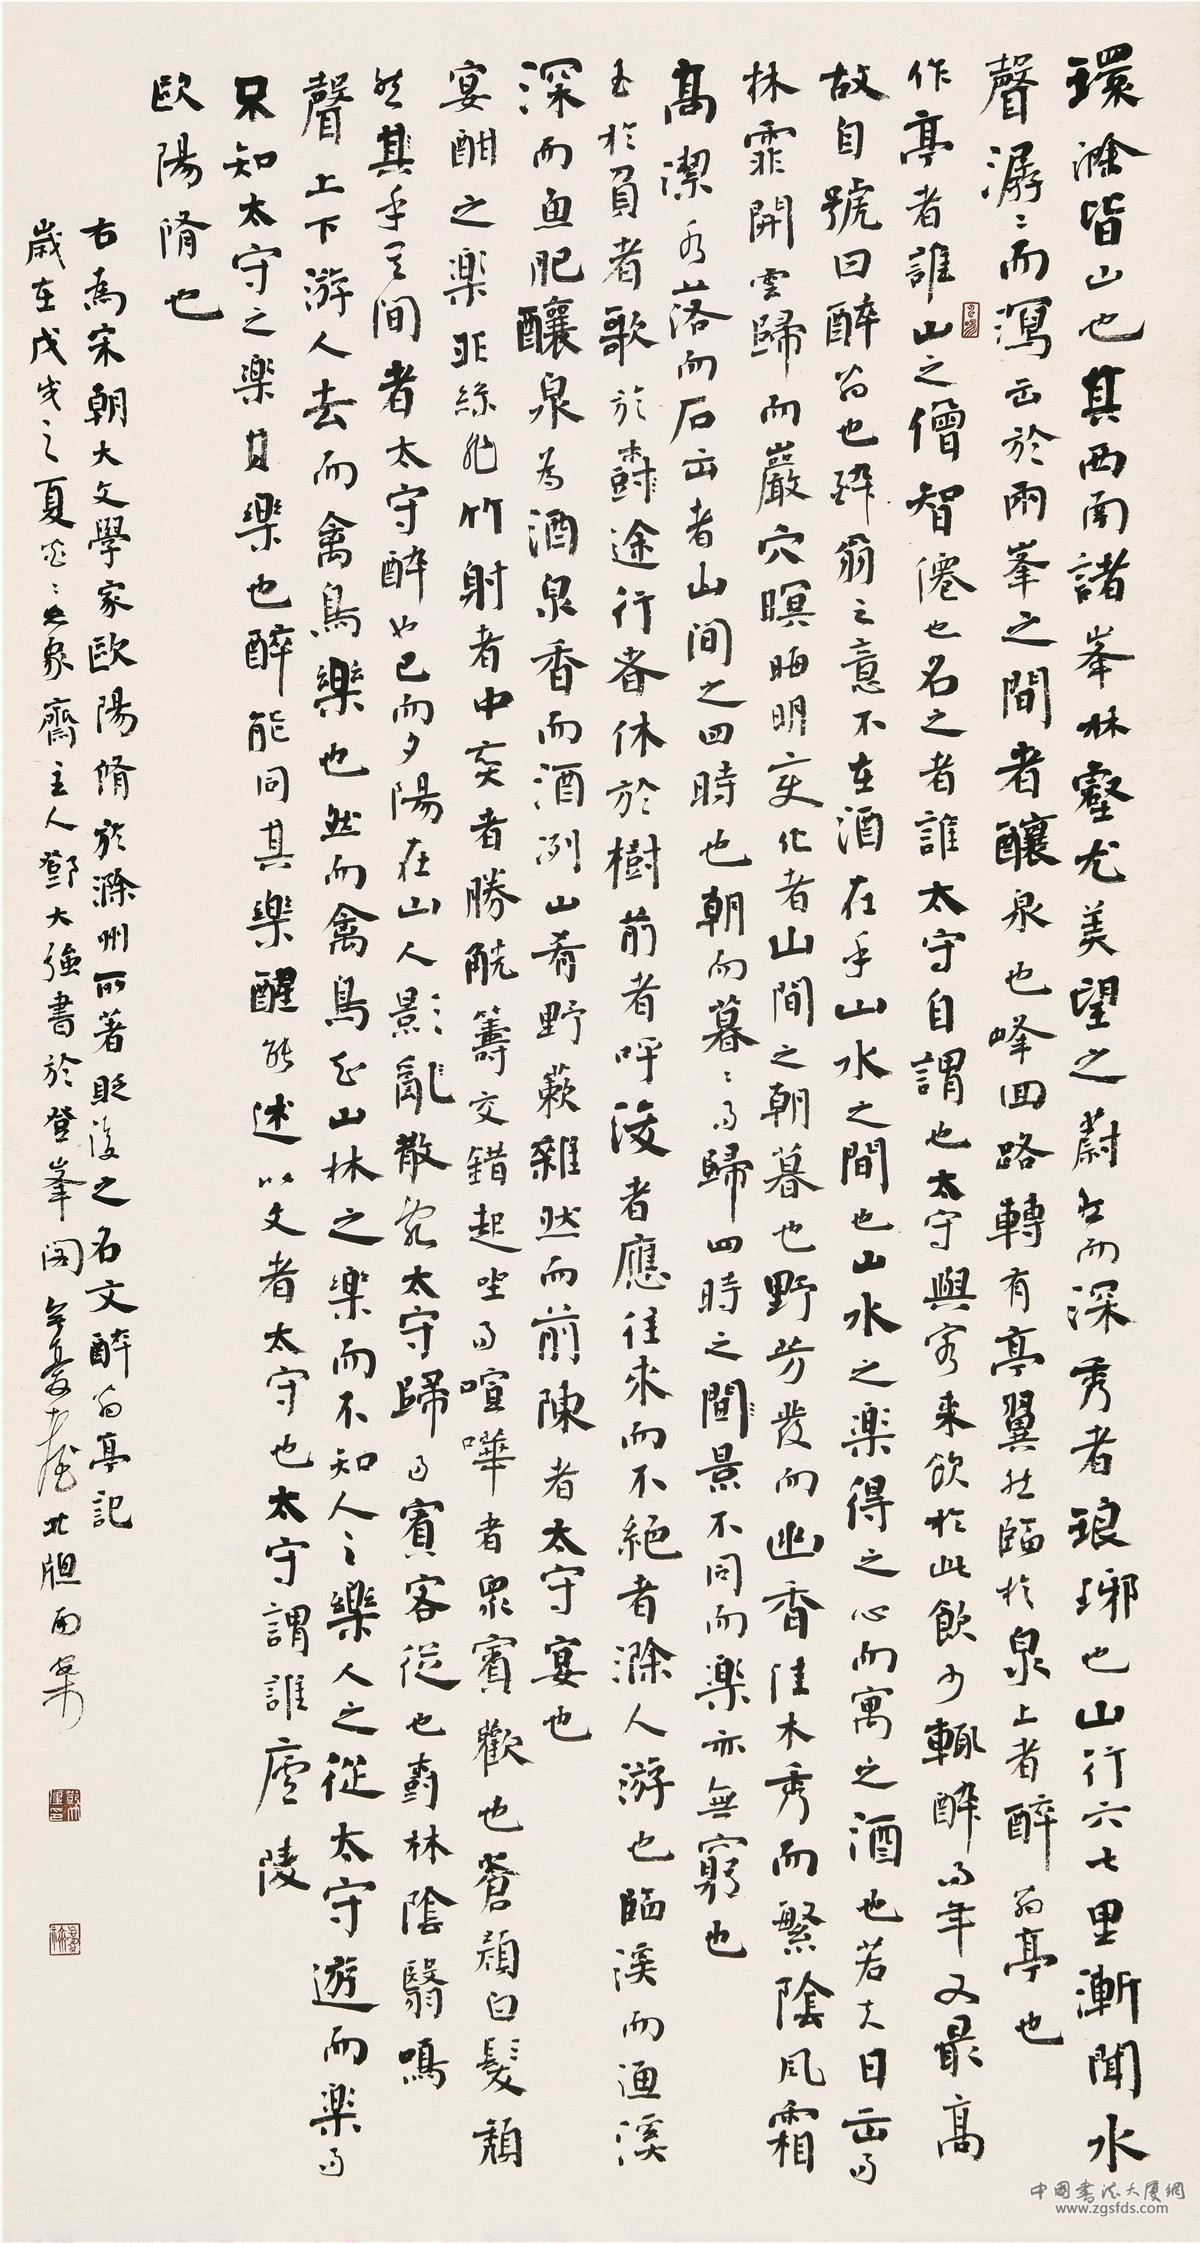 環滁皆山也其西南諸峯林壑尤美望之蔚然而深秀者琅琊也山行六七里漸聞水
聲潺〻而瀉出於兩峯之間者釀泉也峰回路轉有亭翼然臨於泉上者醉翁亭也
作亭者誰山之僧智僊也名之者誰太守自謂也太守與客来飲於此飲少輒醉而年又最高
故自號曰醉翁也醉翁之意不在酒在乎山水之間也山水之楽得之心而寓之酒也若夫日出而
林霏開雲歸而巖穴暝晦明変化者山間之朝暮也野芳發而幽香佳木秀而繁陰風霜
高潔水落而石出者山間之四時也朝而暮〻而歸四時之間景不同而楽亦無窮也
至於負者歌於途行者休於樹前者呼後者應往来而不絶者滁人游也臨溪而漁溪
深而魚肥釀泉為酒泉香而酒洌山肴野蔌雜然而前陳者太守宴也
宴酣之楽非絲非竹射者中奕者勝觥籌交錯起坐而喧嘩者眾賓歡也蒼顔白髮頹
然其乎其間者太守醉也已而夕陽在山人影〻亂散乱太守歸而賓客從也樹林陰翳鳴
聲上下游人去而禽鳥樂也然而禽鳥知山林之楽而不知人之樂人之從太守遊而楽而
不知太守之楽其樂也醉能同其樂醒能述以文者太守也太守謂誰廬陵
歐陽脩也
右為宋朝大文學家歐陽脩於滁州所著貶後之名文醉翁亭記
歲在戊戌之夏 象齋主人鄧大強書於登峯閣 北牕南
中国書法大厦網
www.zgsfds.com